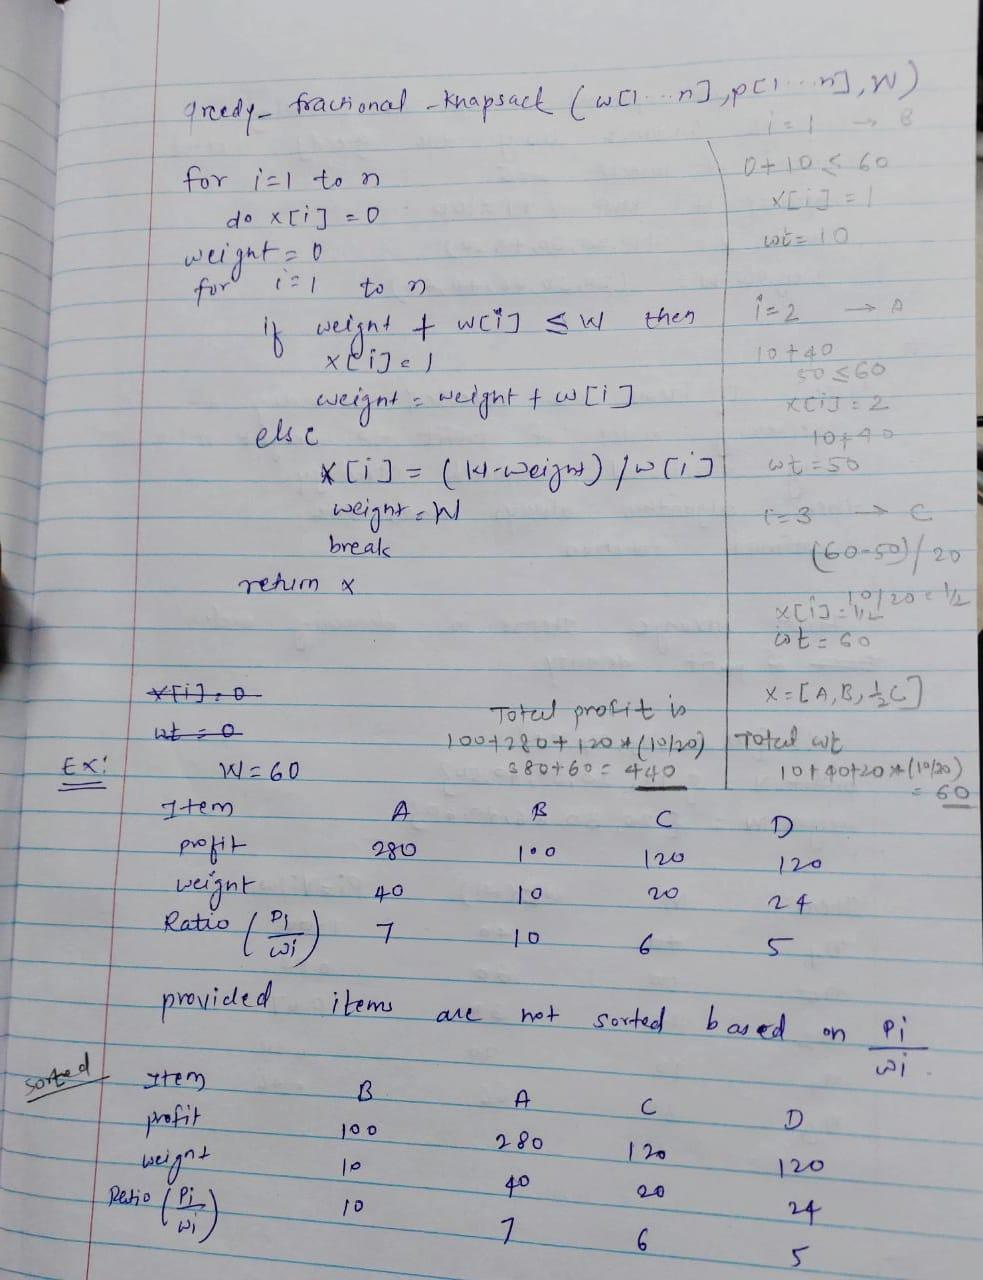 greedy- fractional -knapsack (w[1...n],p[1...n],W)
for i=1 to n
do x[i] = 0
weight = 0
for i=1 to n
if weight + w[i] ≤ W then
x[i]=1
weight = weight + w[i]
else
x[i] = (W-weight)/w[i]
weight = W
break
return x
i=1 → B
0+10 ≤ 60
x[i] = 1
wt = 10
i=2 → A
10+40
50 ≤ 60
x[i] = 2
10+40
wt = 50
i=3 → C
(60-50)/20
10/20 = 1/2
x[i] = 1/2
wt = 60
x = [A,B,½C]
Total wt
10+40+20*(10/20)
= 60
x[i] = 0
wt = 0
Total profit is
100+280+120*(10/20)
380+60 = 440
Ex: W = 60
Item A B C D
profit 280 100 120 120
weight 40 10 20 24
Ratio (Pi/wi) 7 10 6 5
provided items are not sorted based on Pi/wi.
sorted
Item B A C D
profit 100 280 120 120
weight 10 40 20 24
Ratio (Pi/wi) 10 7 6 5